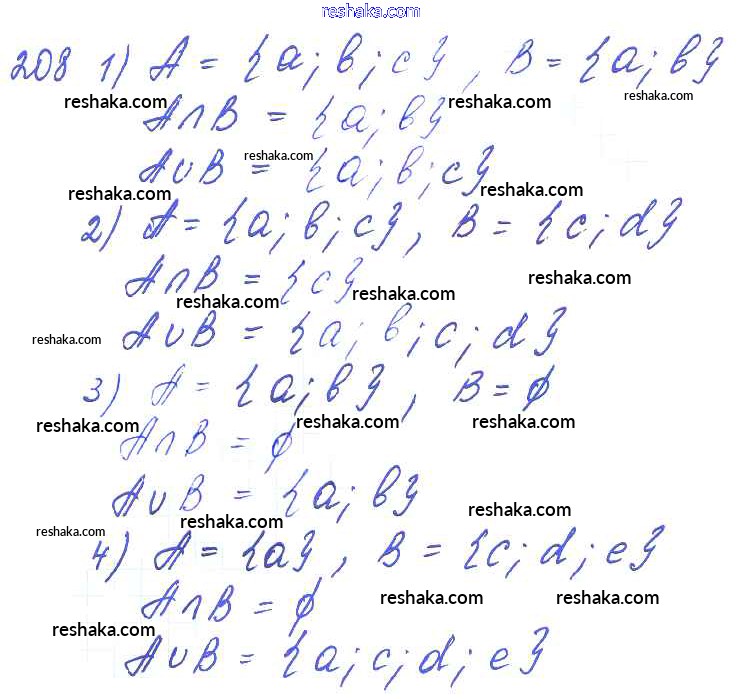 reshaka.com
208 1) A = {a; b; c}, B = {a; b}
reshaka.com reshaka.com reshaka.com
A∩B = {a; b}
reshaka.com
A∪B = {a; b; c}
reshaka.com reshaka.com
2) A = {a; b; c}, B = {c; d}
A∩B = {c}
reshaka.com reshaka.com reshaka.com
reshaka.com
A∪B = {a; b; c; d}
3) A = {a; b}, B = ∅
reshaka.com reshaka.com reshaka.com
A∩B = ∅
A∪B = {a; b}
reshaka.com reshaka.com
reshaka.com
4) A = {a}, B = {c; d; e}
A∩B = ∅
reshaka.com reshaka.com
reshaka.com
A∪B = {a; c; d; e}